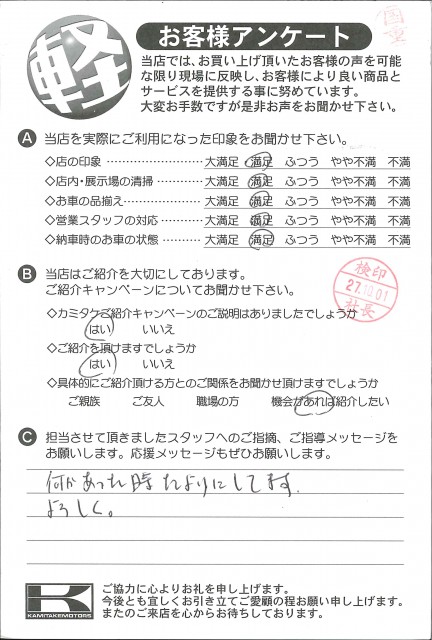 軽
お客様アンケート
当店では、お買い上げ頂いたお客様の声を可能
な限り現場に反映し、お客様により良い商品と
サービスを提供する事に努めています。
大変お手数ですが是非お声をお聞かせ下さい。
A 当店を実際にご利用になった印象をお聞かせ下さい。
◇店の印象 ………………… 大満足 満足 ふつう やや不満 不満
◇店内・展示場の清掃 ………… 大満足 満足 ふつう やや不満 不満
◇お車の品揃え……………… 大満足 満足 ふつう やや不満 不満
◇営業スタッフの対応 ………… 大満足 満足 ふつう やや不満 不満
◇納車時のお車の状態 ………… 大満足 満足 ふつう やや不満 不満
B 当店はご紹介を大切にしております。
ご紹介キャンペーンについてお聞かせ下さい。
検印
27.10.01
社長
◇カミタケご紹介キャンペーンのご説明はありましたでしょうか
はい いいえ
◇ご紹介を頂けますでしょうか
はい いいえ
◇具体的にご紹介頂ける方とのご関係をお聞かせ頂けますでしょうか
ご親族 ご友人 職場の方 機会があれば紹介したい
C 担当させて頂きましたスタッフへのご指摘、ご指導メッセージを
お願いします。応援メッセージもぜひお願いします。
何かあった時たよりにしてます。
よろしく。
K
KAMITAKEMOTORS
ご協力に心よりお礼を申し上げます。
今後とも宜しくお引き立てご愛顧の程お願い申し上げます。
またのご来店を心からお待ちしております。